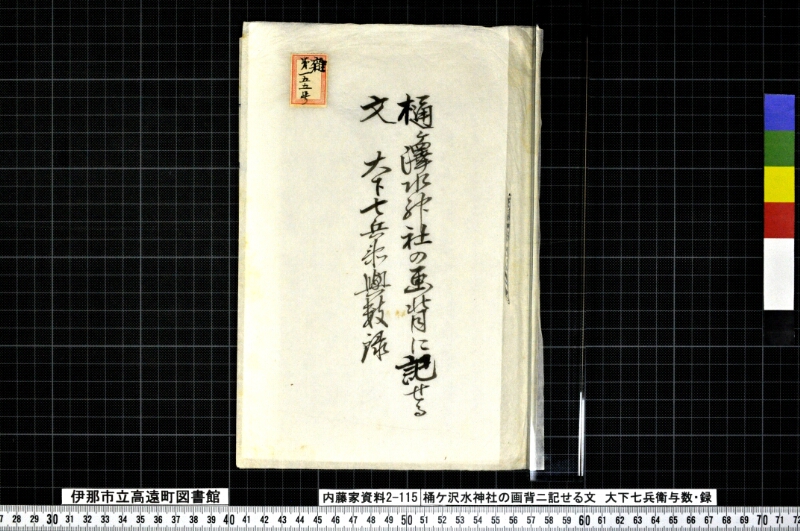 桶ヶ澤水神社の画背に記せる
文 大下七兵衛與数録
雑
第一五五号
伊那市立高遠町図書館
内藤家資料2-115
桶ケ沢水神社の画背ニ記せる文 大下七兵衛与数・録
27 28 29 30 31 32 33 34 35 36 37 38 39 40 41 42 43 44 45 46 47 48 49 50 51 52 53 54 55 56 57 58 59 60 61 62 63 64 65 66 67 68 69 70 71 72